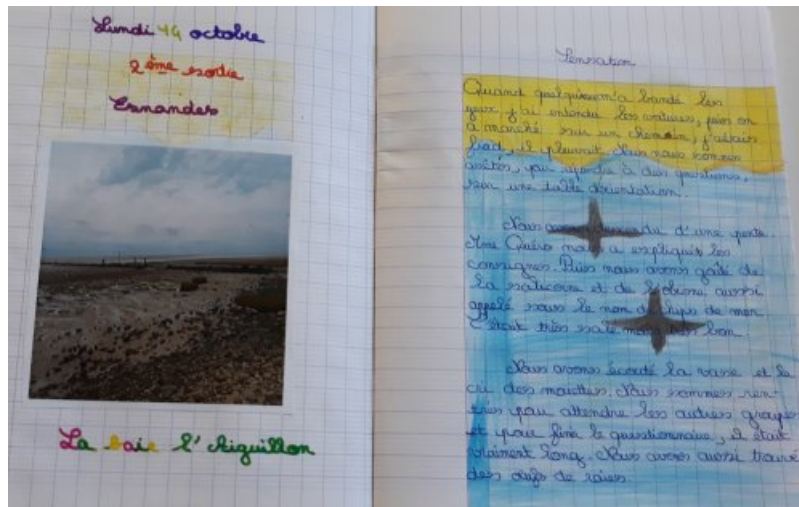 Lundi 14 octobre
2ème sortie
Esnandes
La baie l'Aiguillon
Sensation
Quand quelqu'un m'a bandé les
yeux j'ai entendu les voitures, puis on
a marché sur un chemin, j'avais
froid, il pleuvait. Nous nous sommes
arrêtés, pour répondre à des questions,
sur une table d'orientation.
Nous d'une pente.
Mme Quéro nous a expliqué les
consignes. Puis nous avons goûté de
la salicorne et de l'obione, aussi
appelé sous le nom de chips de mer.
C'était très salé mais très bon.
Nous avons écouté la vase et le
cri des mouettes. Nous sommes ren-
trés pour attendre les autres groupes
et pour finir le questionnaire, il était
vraiment long. Nous avons aussi trouvé
des œufs de raies.